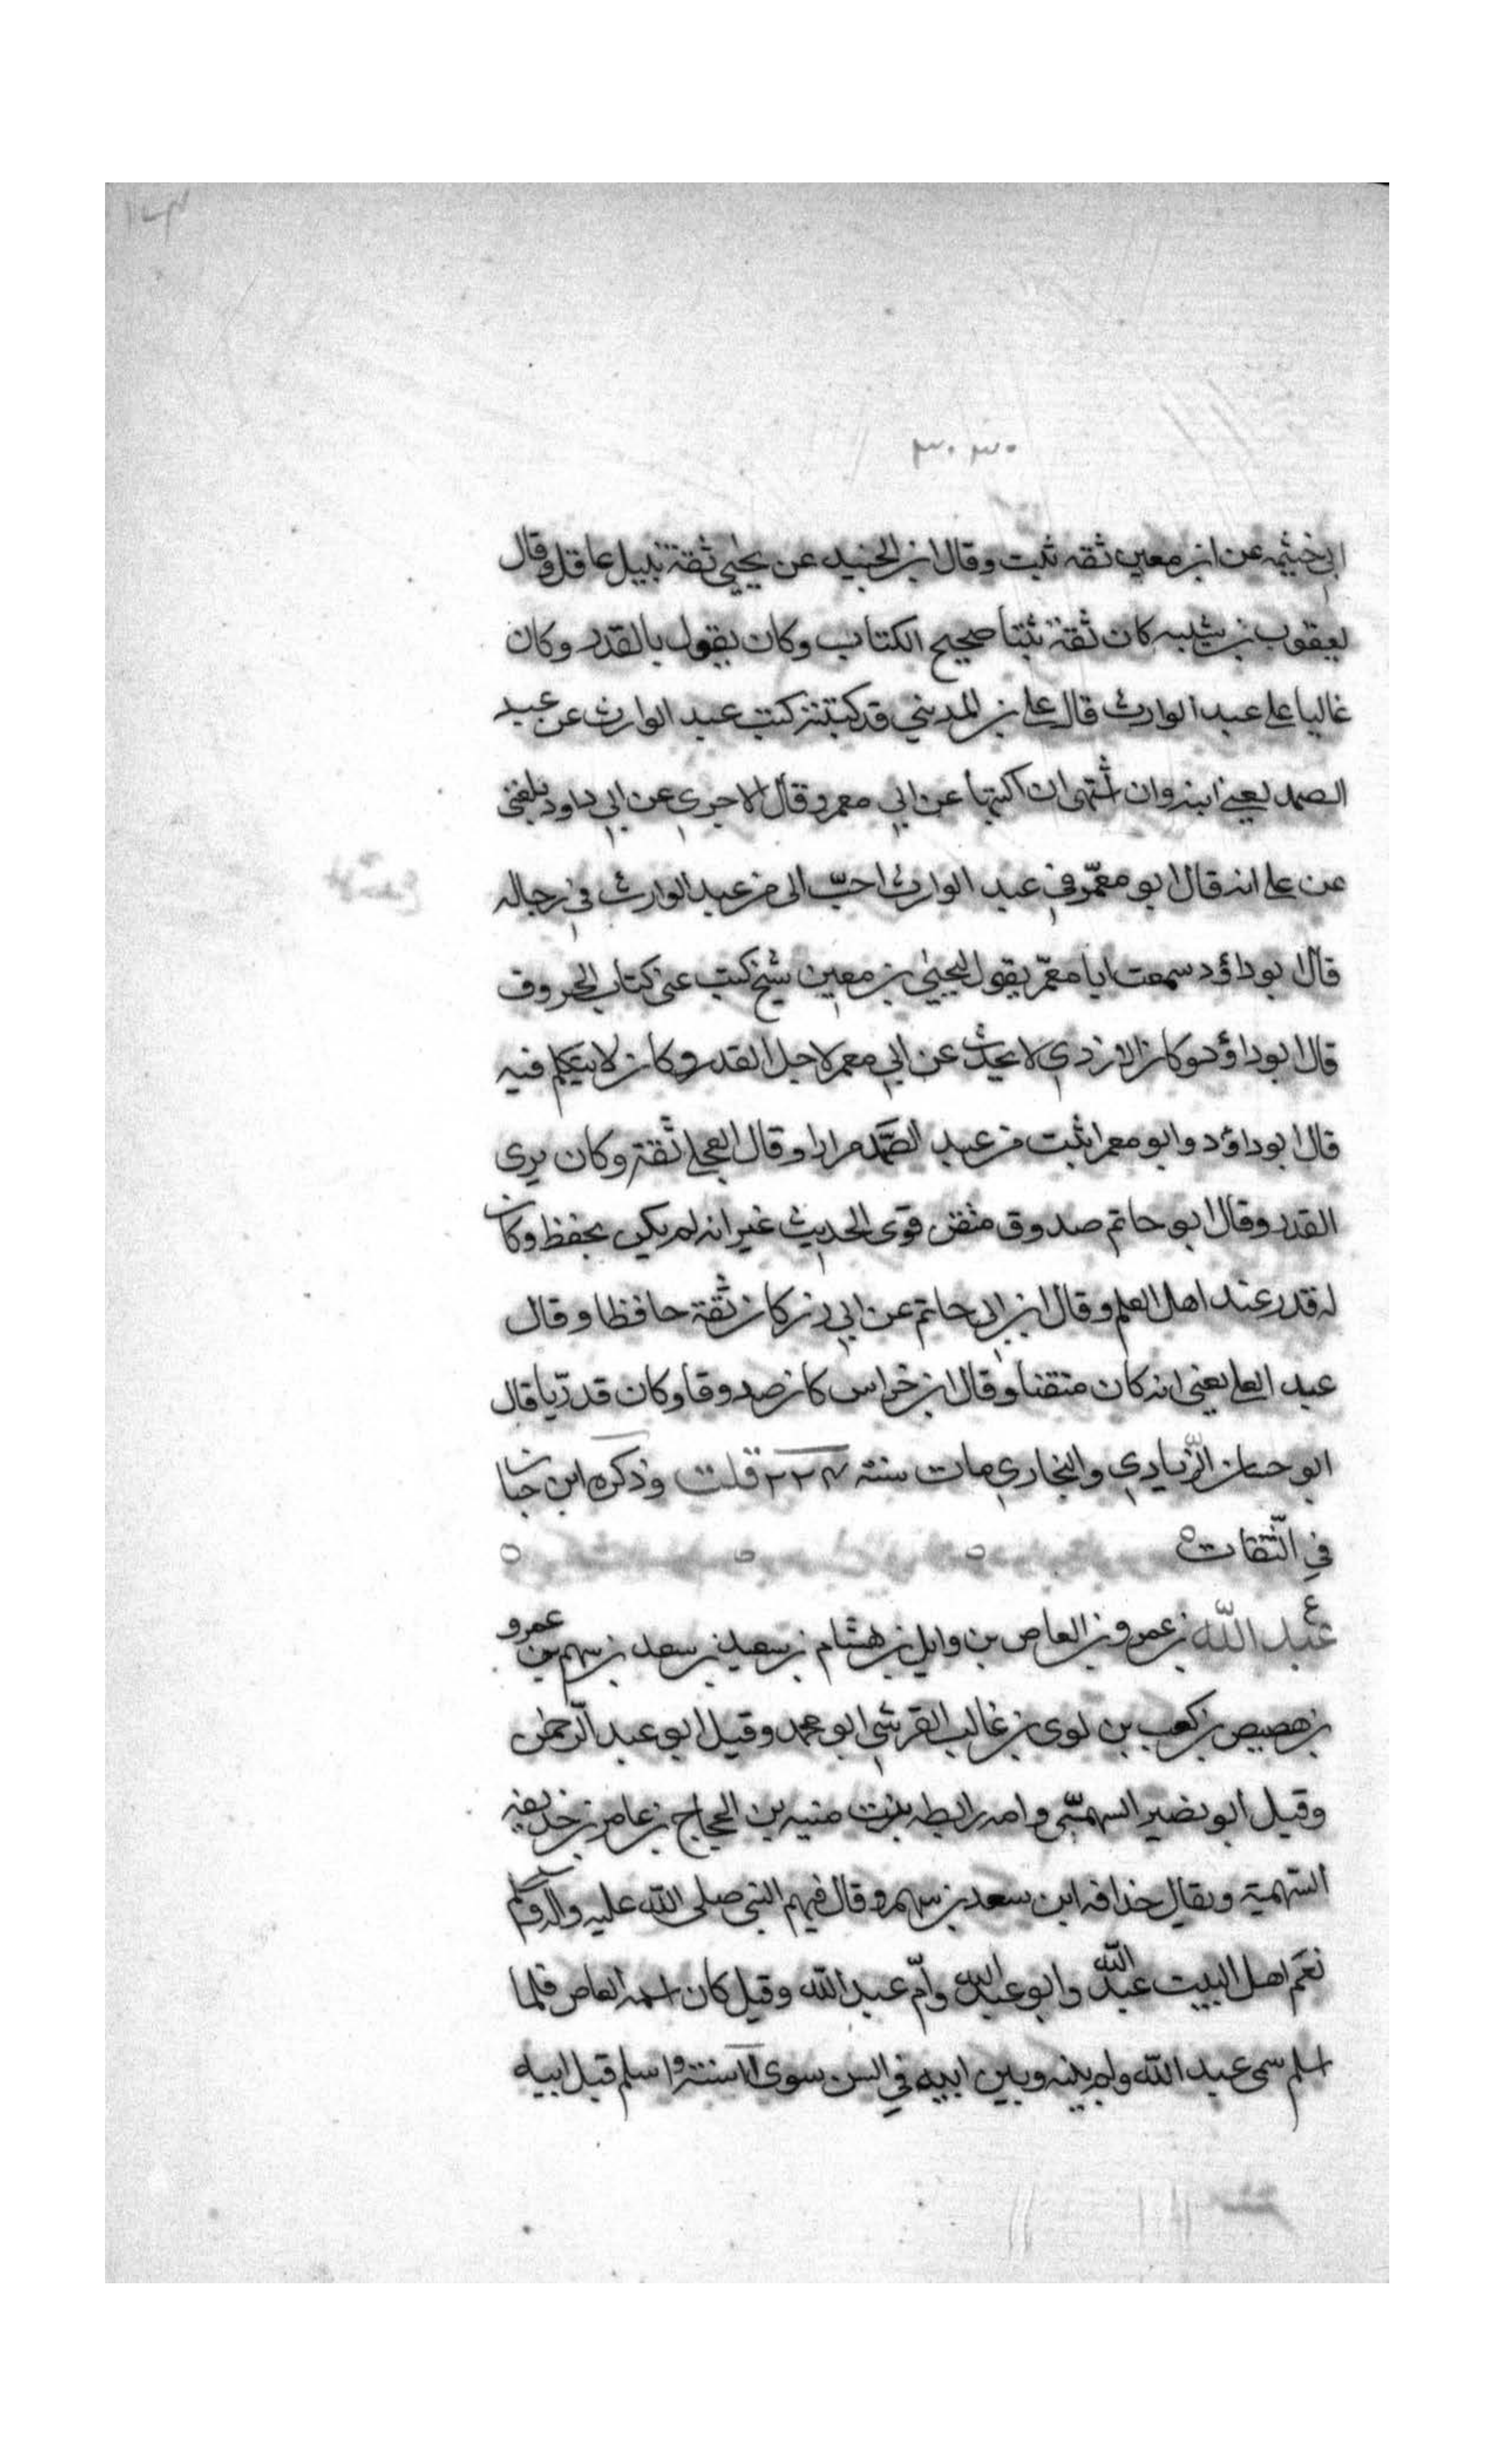 ٣٠٣٠
ابي خيثمه عن ابن معين ثقه ثبت وقال ابن الجنيد عن يحيى ثقة نبيل عاقل وقال
يعقوب بن شيبه كان ثقة ثبتا صحيح الكتاب وكان يقول بالقدر وكان
غالبا على عبد الوارث قال علي بن المديني قد كتبت كتب عبد الوارث عن عبد
الصمد يعني ابنه وان اشتهى ان اكتبها عن ابي معمر وقال الاجري عن ابي داود بلغني
عن علي انه قال ابو معمّر في عبد الوارث احبّ الى من عبد الوارث في رجاله
قال ابو داؤد سمعت ابا معمّر يقول ليحيى بن معين شيخ كتب عني كتاب الحروف
قال ابو داؤد وكان الازدي لا يحدث عن ابي معمر لاجل القدر وكان لا يتكلم فيه
قال ابو داؤد وابو معمر اثبت من عبد الصَّمد مرارا وقال العجلي ثقة وكان يرى
القدر وقال ابو حاتم صدوق متقن قوى الحديث غير انه لم يكن يحفظ وكان
له قدر عند اهل العلم وقال ابن ابي حاتم عن ابي زرعة كان ثقة حافظا وقال
عبد العلي يعني انه كان متقنا وقال ابن خراس كان صدوقا وكان قدريّا قال
ابو حسان الزّيادي والبخاري مات سنة ٢٢٤ قلت وذكره ابن حبان
في الثّقات
ع
عبد اللّه بن عمرو بن العاص بن وايل بن هشام بن سعيد بن سعد بن سهم بن عمرو
بن هصيص بن كعب بن لوى بن غالب القرشي ابو محمد وقيل ابو عبد الرّحمن
وقيل ابو نضير السهميّ وامه رايطه بنت منبه بن الحجاج بن عامر بن حذيفه
السّهمية ويقال حذافه ابن سعد بن سهم وقال فيهم النبي صلى اللّه عليه واله وسلم
نعم اهل البيت عبد اللّه وابو عبد اللّه وأمّ عبد اللّه وقيل كان اسمه العاص فلما
اسلم سمى عبد اللّه ولم بينه وبين ابيه في السن سوى ١١ سنة واسلم قبل ابيه